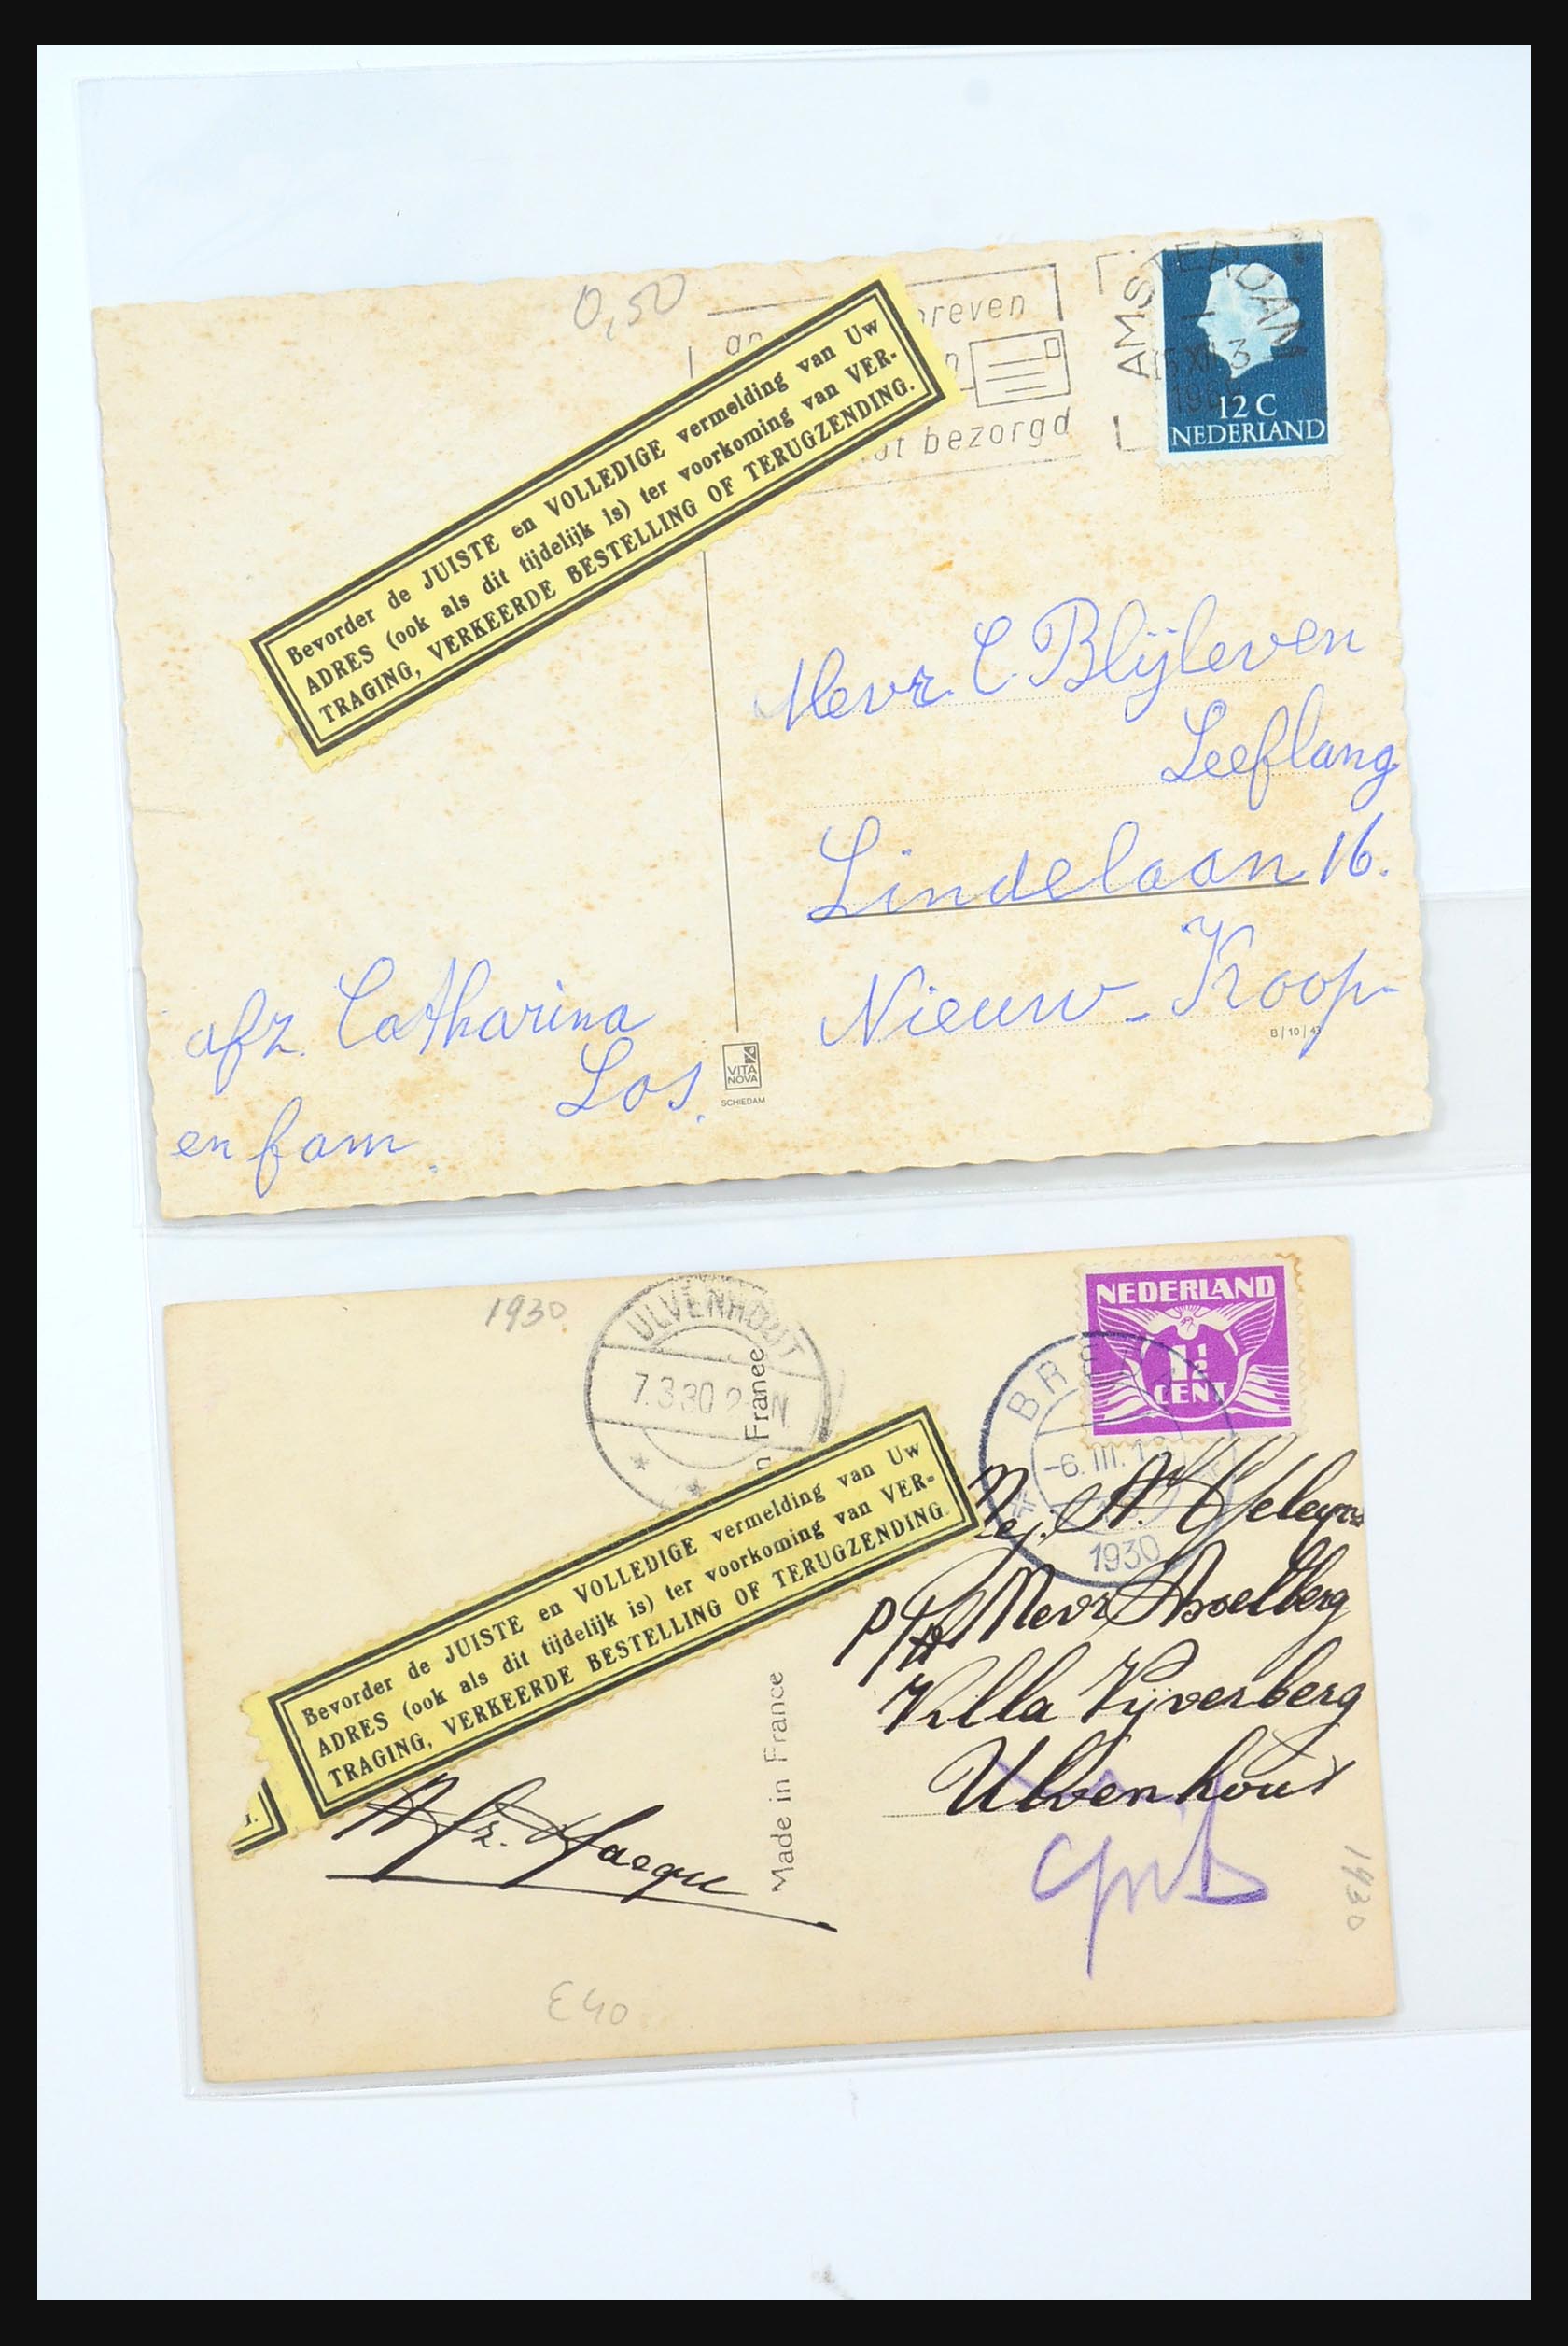 0,50
reven
bezorgd
AMSTERDAM
12 C
NEDERLAND
Bevorder de JUISTE en VOLLEDIGE vermelding van Uw
ADRES (ook als dit tijdelijk is) ter voorkoming van VER-
TRAGING, VERKEERDE BESTELLING OF TERUGZENDING.
Mevr. C. Blijleven
Leeflang
Lindelaan 16.
Nieuw-Koop
B/10/43
afz. Catharina
Los.
en fam.
VITA
NOVA
SCHIEDAM
1930
ULVENHOUT
7.3.30
NEDERLAND
1½
CENT
-6.III.
1930
Bevorder de JUISTE en VOLLEDIGE vermelding van Uw
ADRES (ook als dit tijdelijk is) ter voorkoming van VER-
TRAGING, VERKEERDE BESTELLING OF TERUGZENDING.
Mej. A.
Mevr Asselberg
Villa Vijverberg
Ulvenhout
Made in France
Afz.
1930
E40